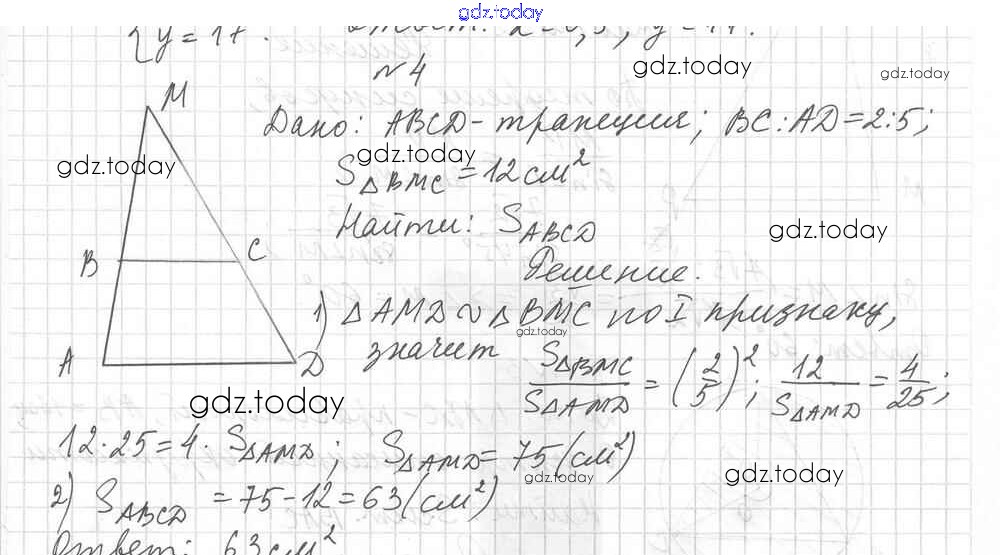 gdz.today
{y = 17.
№4
gdz.today
gdz.today
M
Дано: ABCD - трапеция; BC:AD = 2:5;
gdz.today
gdz.today
S△BMC = 12 см²
Найти: SABCD
gdz.today
B
C
Решение.
1) △AMD ∾ △BMC по I признаку,
gdz.today
A
D
значит S△BMC/S△AMD = (2/5)²; 12/S△AMD = 4/25;
gdz.today
12·25 = 4·S△AMD; S△AMD = 75 (см²)
gdz.today
gdz.today
2) SABCD = 75-12 = 63 (см²)
Ответ: 63 см²